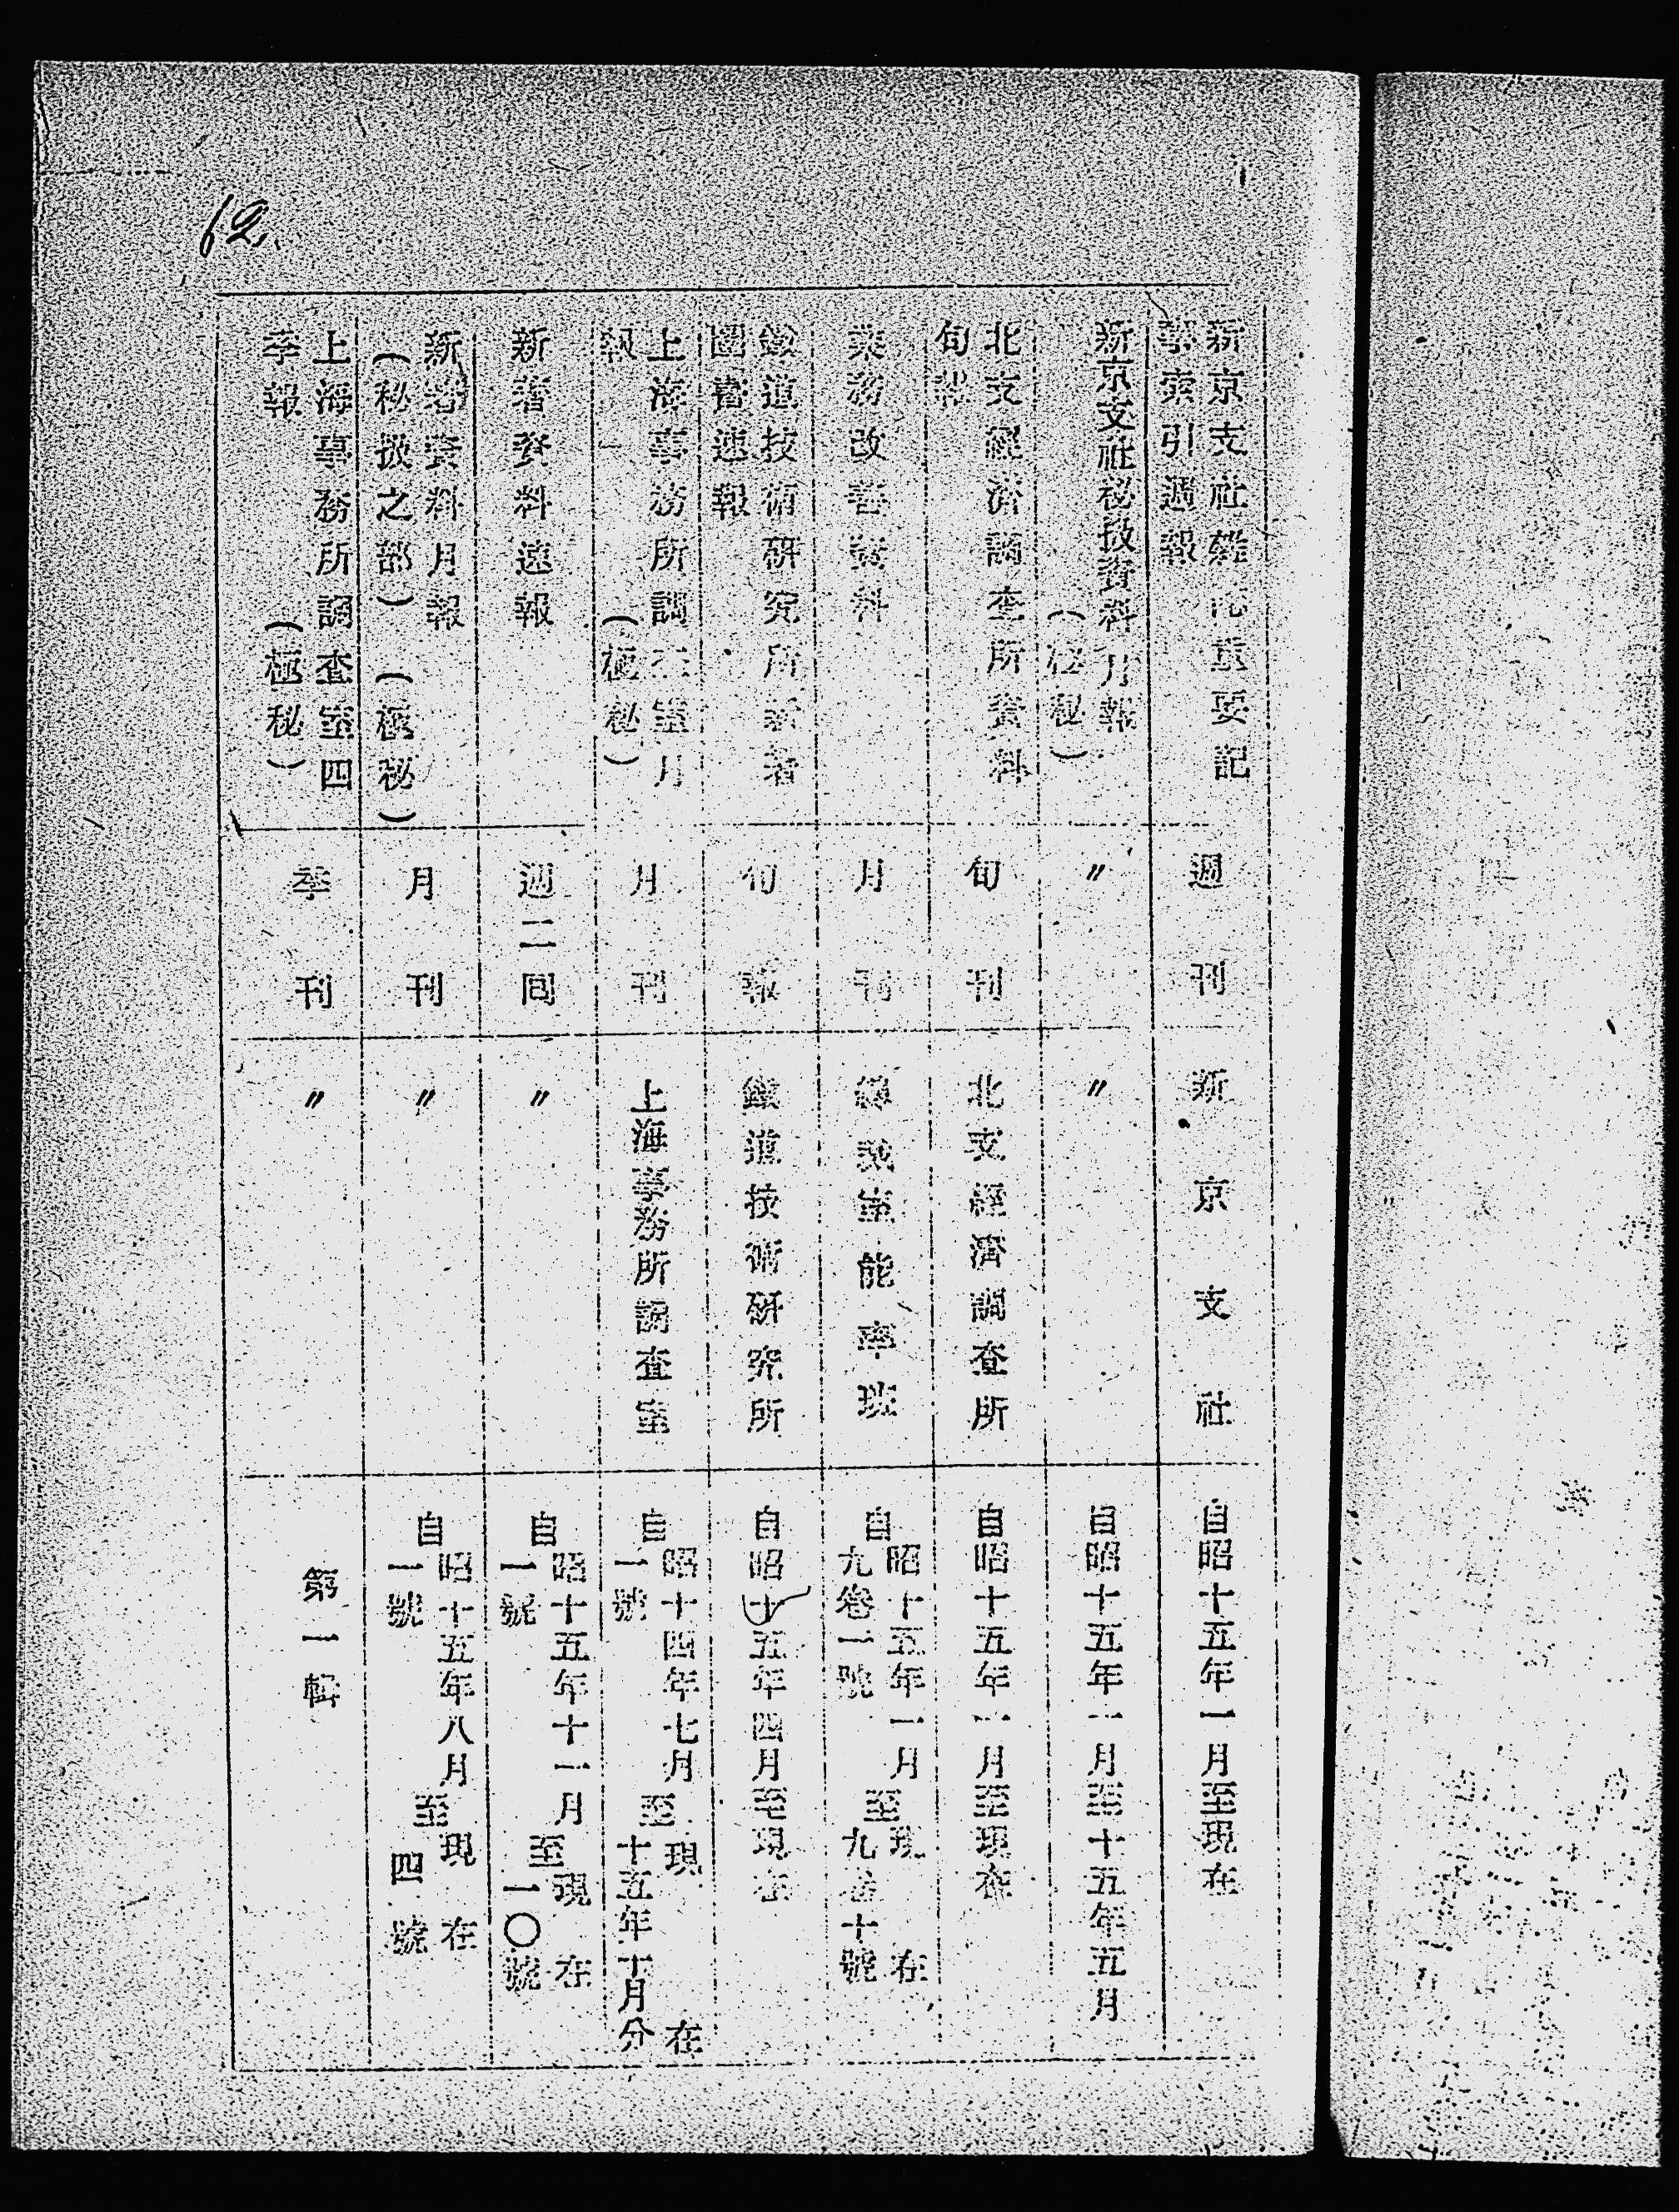 62.
新京支社雑誌重要記
事索引週報
週刊
新京支社
自昭十五年一月至現在
新京支社秘扱資料月報
(極秘)
〃
〃
自昭十五年一月至十五年五月
北支經濟調査所資料
旬報
旬刊
北支經濟調査所
自昭十五年一月至現在
業務改善資料
月刊
業室能率班
自昭十五年一月至現在
九卷一號 九卷十號
鐵道技術研究所新着
圖書速報
旬報
鐵道技術研究所
自昭十五年四月至現在
上海事務所調査室月
報 (極秘)
月刊
上海事務所調査室
自昭十四年七月至現在
一號 十五年十月分
新着資料速報
週二回
〃
自昭十五年十一月至現在
一號 一〇號
新着資料月報
(秘扱之部)(極秘)
月刊
〃
自昭十五年八月至現在
一號 四號
上海事務所調査室四
季報 (極秘)
季刊
〃
第一輯